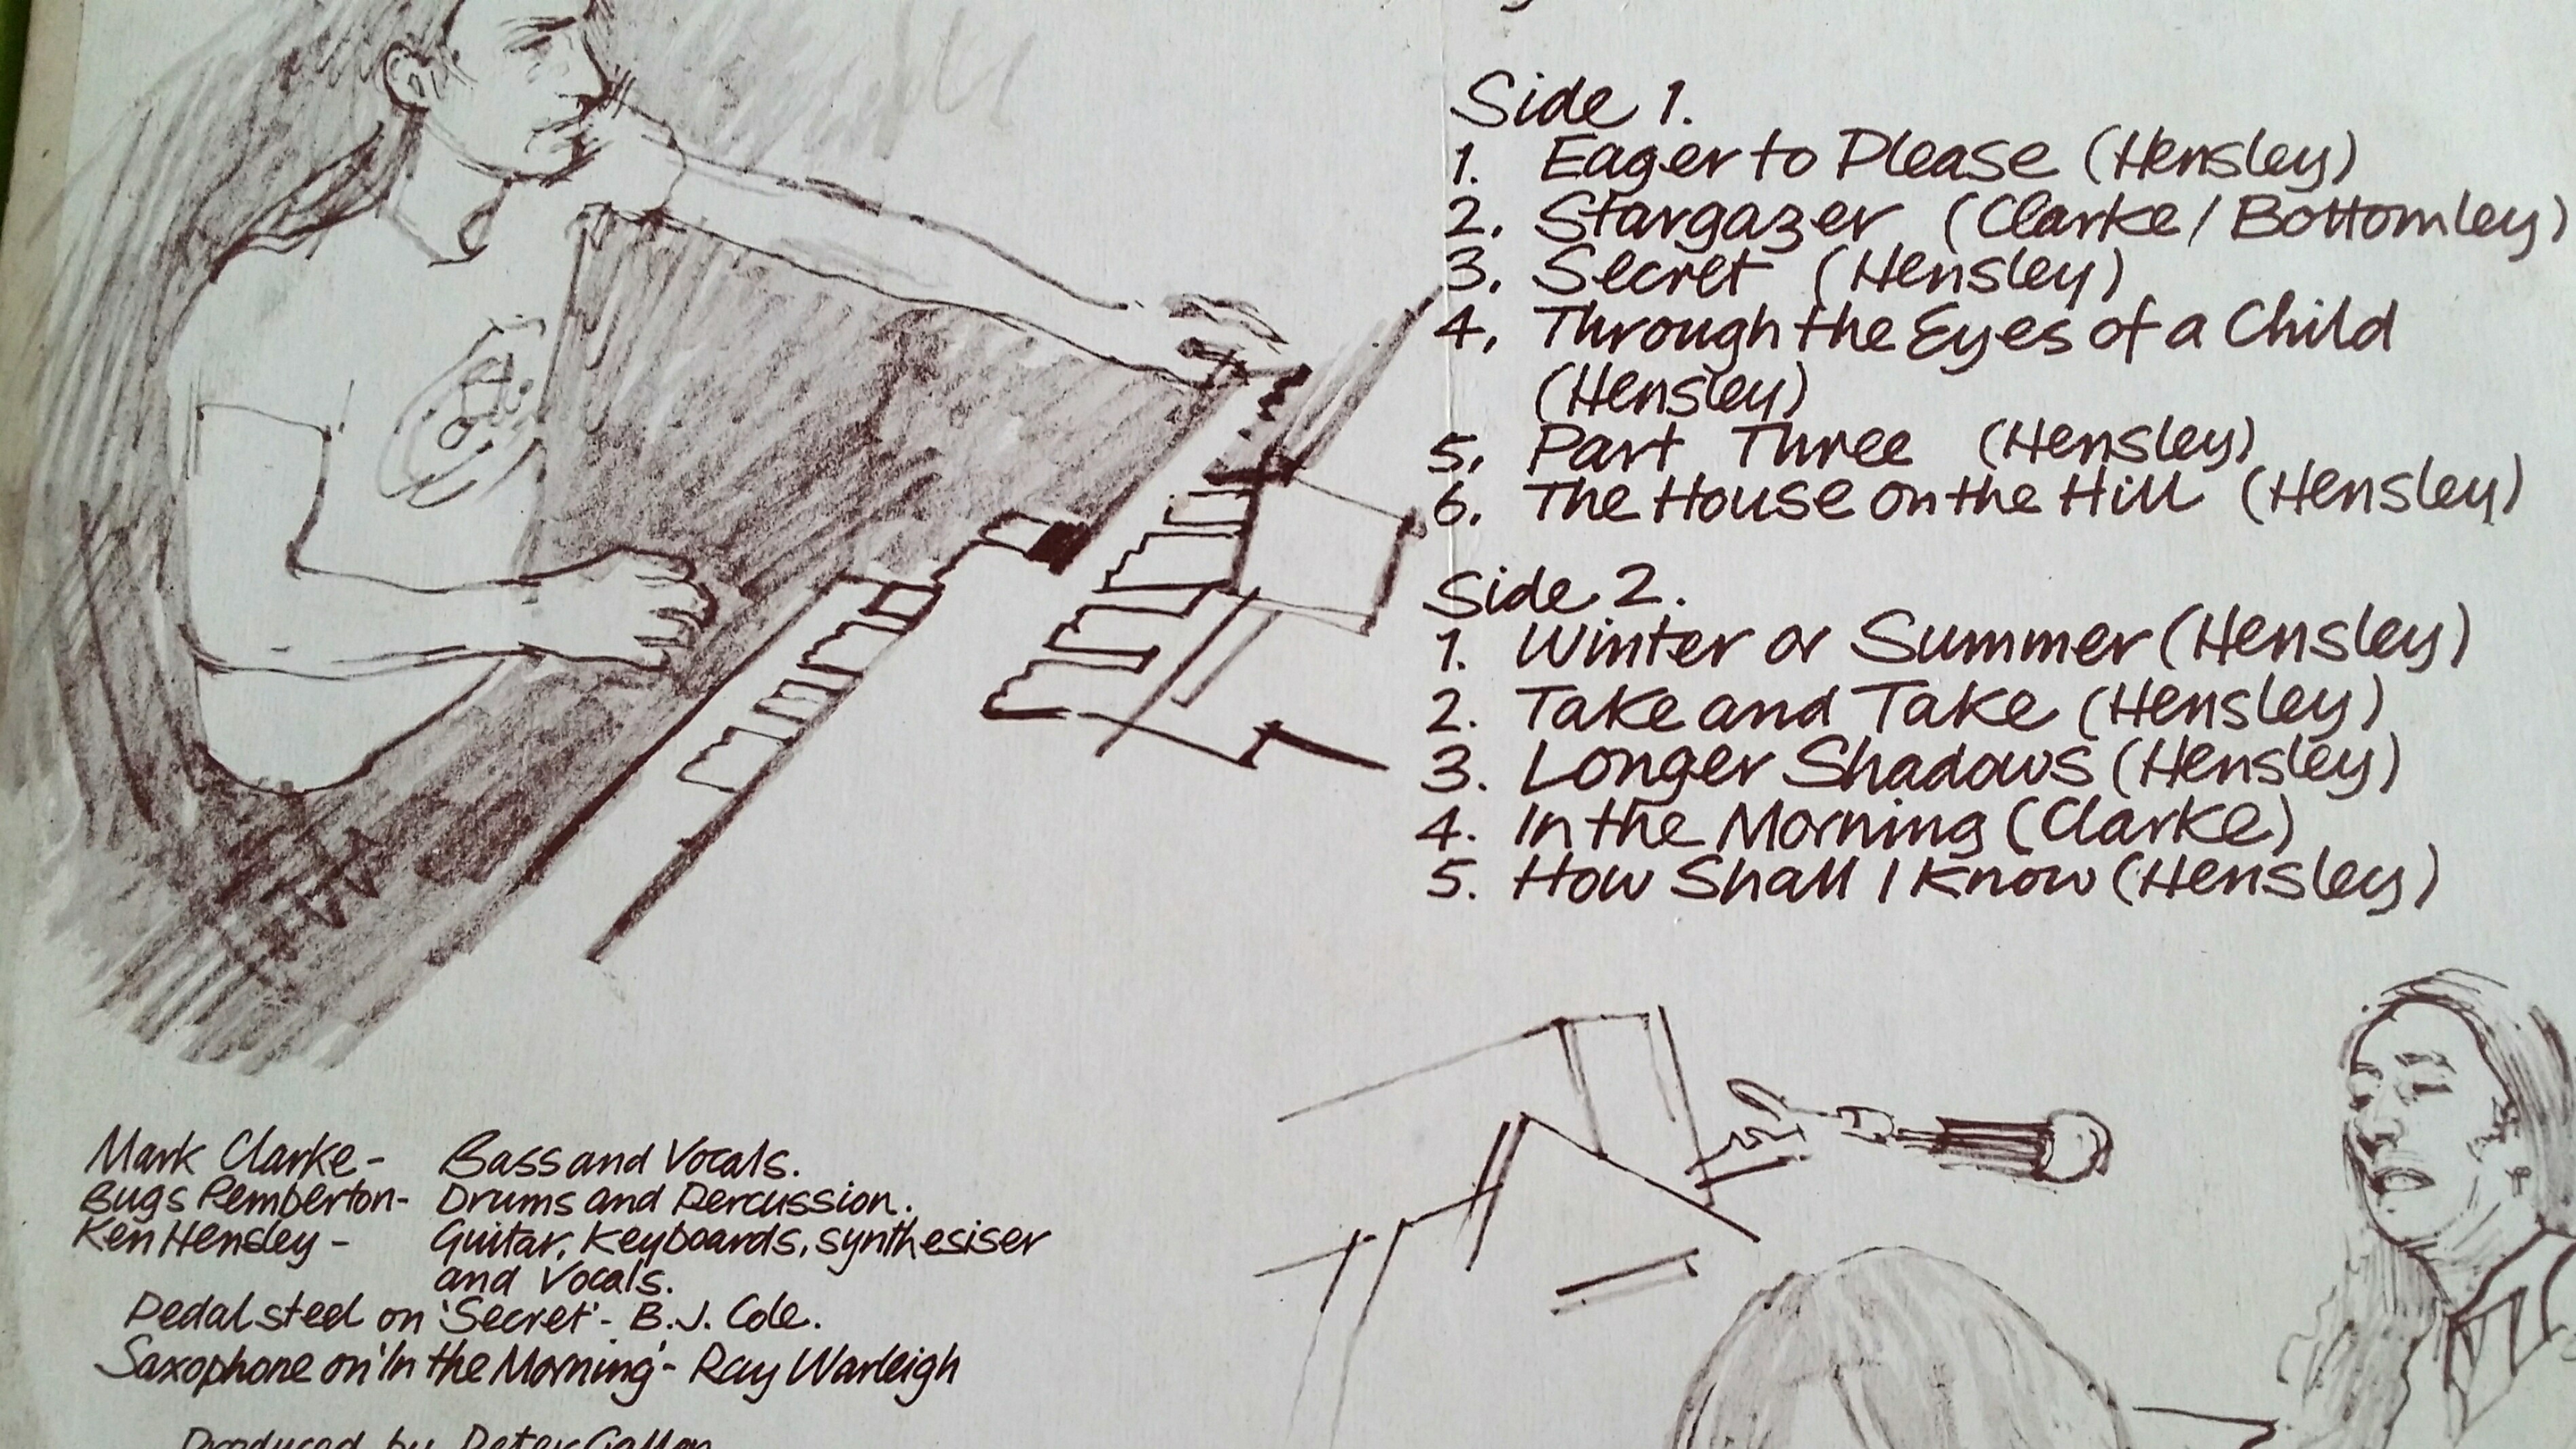 Side 1.
1. Eager to Please (Hensley)
2. Stargazer (Clarke / Bottomley)
3. Secret (Hensley)
4. Through the Eyes of a Child
(Hensley)
5. Part Three (Hensley)
6. The House on the Hill (Hensley)
Side 2.
1. Winter or Summer (Hensley)
2. Take and Take (Hensley)
3. Longer Shadows (Hensley)
4. In the Morning (Clarke)
5. How Shall I Know (Hensley)
Mark Clarke - Bass and Vocals.
Bugs Pemberton - Drums and Percussion.
Ken Hensley - Guitar, Keyboards, synthesiser
and Vocals.
Pedal steel on 'Secret' - B.J. Cole.
Saxophone on 'In the Morning' - Ray Warleigh
Produced by Peter